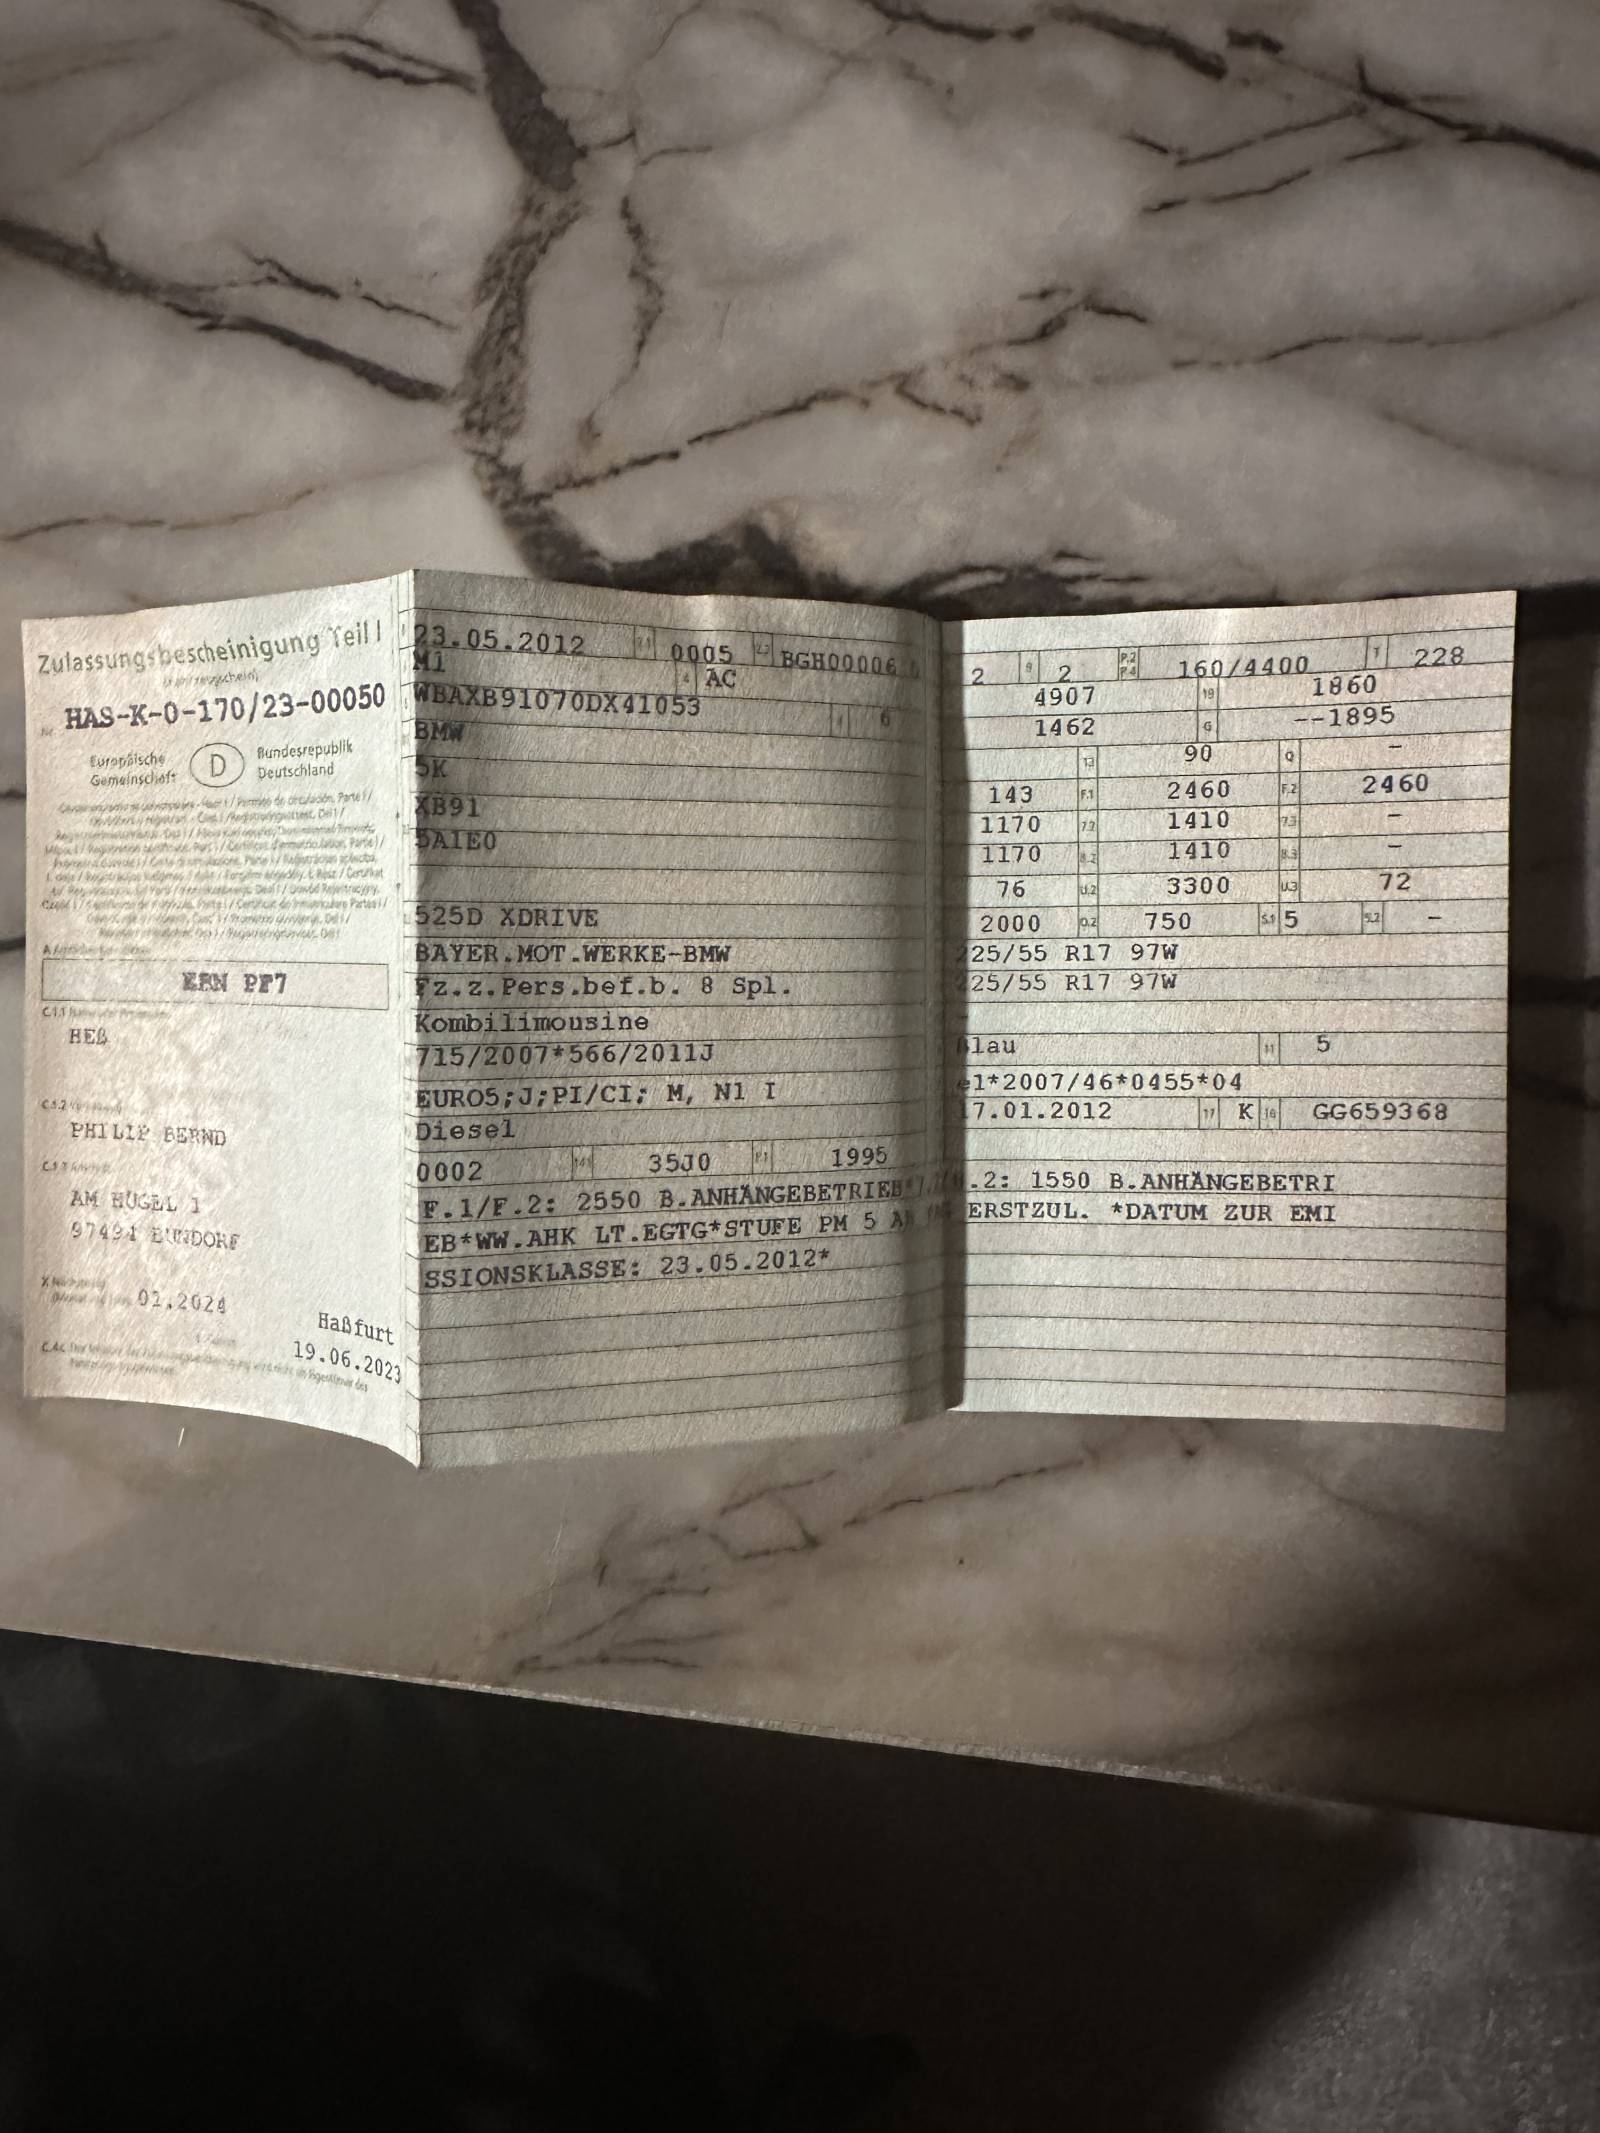 Zulassungsbescheinigung Teil I
HAS-K-0-170/23-00050
Europäische
Gemeinschaft
D
Bundesrepublik
Deutschland
EBN PF7
HEß
PHILIP BERND
AM HÜGEL 1
97494 BUNDORF
01.2024
Haßfurt
19.06.2023
23.05.2012 0005 BGH00006
M1 4 AC
WBAXB91070DX41053 6
BMW
5K
XB91
5A1E0
525D XDRIVE
BAYER.MOT.WERKE-BMW
Fz.z.Pers.bef.b. 8 Spl.
Kombilimousine
715/2007*566/2011J
EURO5;J;PI/CI; M, N1 I
Diesel
0002 35J0 P.1 1995
F.1/F.2: 2550 B.ANHÄNGEBETRIEB*
EB*WW.AHK LT.EGTG*STUFE PM 5 AB
SSIONSKLASSE: 23.05.2012*
2 9 2 P.2 P.4 160/4400 T 228
4907 19 1860
1462 G --1895
13 90 Q -
143 F.1 2460 F.2 2460
1170 7.2 1410 7.3 -
1170 8.2 1410 8.3 -
76 U.2 3300 U.3 72
2000 O.2 750 S.1 5 S.2 -
225/55 R17 97W
225/55 R17 97W
Blau 11 5
e1*2007/46*0455*04
17.01.2012 17 K 16 GG659368
.2: 1550 B.ANHÄNGEBETRI
ERSTZUL. *DATUM ZUR EMI